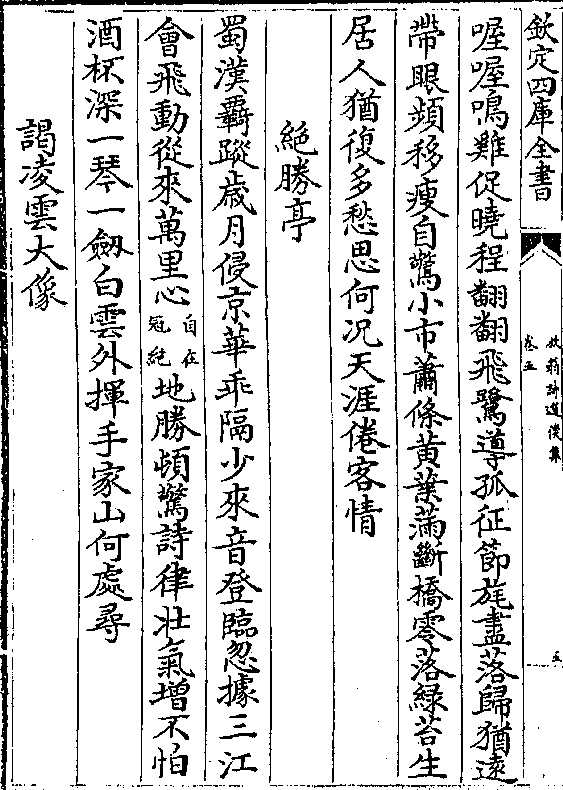 欽定四庫全書
放翁詩選後集
卷五
五
喔喔鳴雞促曉程翻翻飛鷺導孤征節旄盡落歸猶遠
帶眼頻移瘦自驚小市蕭條黄葉滿斷橋零落緑苔生
居人猶復多愁思何況天涯倦客情
絶勝亭
蜀漢羇蹤歲月侵京華乖隔少來音登臨忽據三江
會飛動從來萬里心自在冠絶地勝頓驚詩律壯氣增不怕
酒杯深一琴一劒白雲外揮手家山何處尋
謁凌雲大像